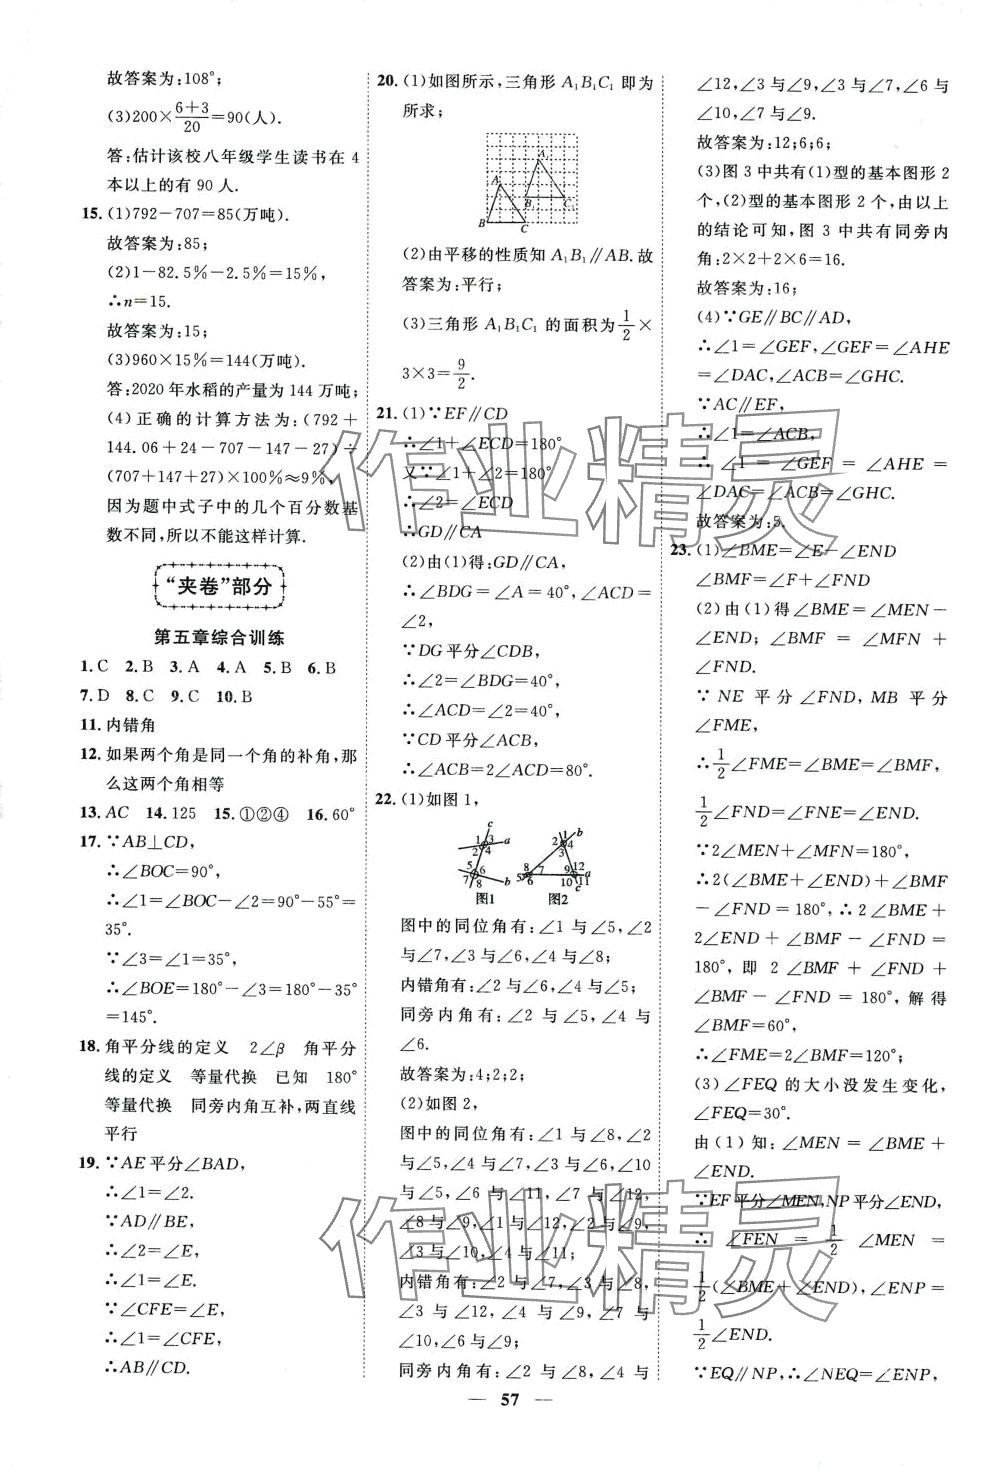 故答案为:108°;
(3)200×(6+3)/20=90(人).
答:估计该校八年级学生读书在 4
本以上的有 90 人.
15. (1)792-707=85(万吨).
故答案为:85;
(2)1-82.5%-2.5%=15%,
∴n=15.
故答案为:15;
(3)960×15%=144(万吨).
答:2020 年水稻的产量为 144 万吨;
(4)正确的计算方法为:(792+
144.06+24-707-147-27)÷
(707+147+27)×100%≈9%,
因为题中式子中的几个百分数基
数不同,所以不能这样计算.
“夹卷”部分
第五章综合训练
1. C 2. B 3. A 4. A 5. B 6. B
7. D 8. C 9. C 10. B
11. 内错角
12. 如果两个角是同一个角的补角,那
么这两个角相等
13. AC 14. 125 15. ①②④ 16. 60°
17. ∵AB⊥CD,
∴∠BOC=90°,
∴∠1=∠BOC-∠2=90°-55°=
35°.
∵∠3=∠1=35°,
∴∠BOE=180°-∠3=180°-35°
=145°.
18. 角平分线的定义 2∠β 角平分
线的定义 等量代换 已知 180°
等量代换 同旁内角互补,两直线
平行
19. ∵AE平分∠BAD,
∴∠1=∠2.
∵AD∥BE,
∴∠2=∠E,
∴∠1=∠E.
∵∠CFE=∠E,
∴∠1=∠CFE,
∴AB∥CD.
20. (1)如图所示,三角形 A₁B₁C₁ 即为
所求;
A₁
A
B₁ C₁
B C
(2)由平移的性质知 A₁B₁∥AB.故
答案为:平行;
(3)三角形 A₁B₁C₁ 的面积为1/2×
3×3=9/2.
21. (1)∵EF∥CD
∴∠1+∠ECD=180°
又∵∠1+∠2=180°
∴∠2=∠ECD
∴GD∥CA
(2)由(1)得:GD∥CA,
∴∠BDG=∠A=40°,∠ACD=
∠2,
∵DG平分∠CDB,
∴∠2=∠BDG=40°,
∴∠ACD=∠2=40°,
∵CD平分∠ACB,
∴∠ACB=2∠ACD=80°.
22. (1)如图 1,
c 1 3 a 2 4 5 6 7 8 b
1 b 2 4 3 8 7 5 6 9 12 10 11 a c
图1 图2
图中的同位角有:∠1 与∠5,∠2
与∠7,∠3 与∠6,∠4 与∠8;
内错角有:∠2 与∠6,∠4 与∠5;
同旁内角有:∠2 与∠5,∠4 与
∠6.
故答案为:4;2;2;
(2)如图 2,
图中的同位角有:∠1 与∠8,∠2
与∠5,∠4 与∠7,∠3 与∠6,∠10
与∠5,∠6 与∠11,∠7 与∠12,
∠8 与∠9,∠1 与∠12,∠2 与∠9,
∠3 与∠10,∠4 与∠11;
内错角有:∠2 与∠7,∠3 与∠8,
∠3 与∠12,∠4 与∠9,∠7 与
∠10,∠6 与∠9;
同旁内角有:∠2 与∠8,∠3 与
∠12,∠3 与∠9,∠4 与∠7,∠6 与
∠10,∠7 与∠9.
故答案为:12;6;6;
(3)图 3 中共有(1)型的基本图形 2
个,(2)型的基本图形 2 个,由以上
的结论可知,图 3 中共有同旁内
角:2×2+2×6=16.
故答案为:16;
(4)∵GE∥BC∥AD,
∴∠1=∠GEF,∠GEF=∠AHE
=∠DAC,∠ACB=∠GHC.
∵AC∥EF,
∴∠1=∠ACB,
∴∠1=∠GEF=∠AHE=
∠DAC=∠ACB=∠GHC.
故答案为:5.
23. (1)∠BME=∠E-∠END
∠BMF=∠F+∠FND
(2)由(1)得∠BME=∠MEN-
∠END;∠BMF=∠MFN+
∠FND.
∵NE平分∠FND,MB平分
∠FME,
∴1/2∠FME=∠BME=∠BMF,
1/2∠FND=∠FNE=∠END.
∵2∠MEN+∠MFN=180°,
∴2(∠BME+∠END)+∠BMF
-∠FND=180°,∴2∠BME+
2∠END+∠BMF-∠FND=
180°,即 2∠BMF+∠FND+
∠BMF-∠FND=180°,解得
∠BMF=60°,
∴∠FME=2∠BMF=120°;
(3)∠FEQ 的大小没发生变化,
∠FEQ=30°.
由(1)知:∠MEN=∠BME+
∠END.
∵EF平分∠MEN,NP平分∠END,
∴∠FEN=1/2∠MEN=
1/2(∠BME+∠END),∠ENP=
1/2∠END.
∵EQ∥NP,∴∠NEQ=∠ENP,
57
作业精灵
作业精灵